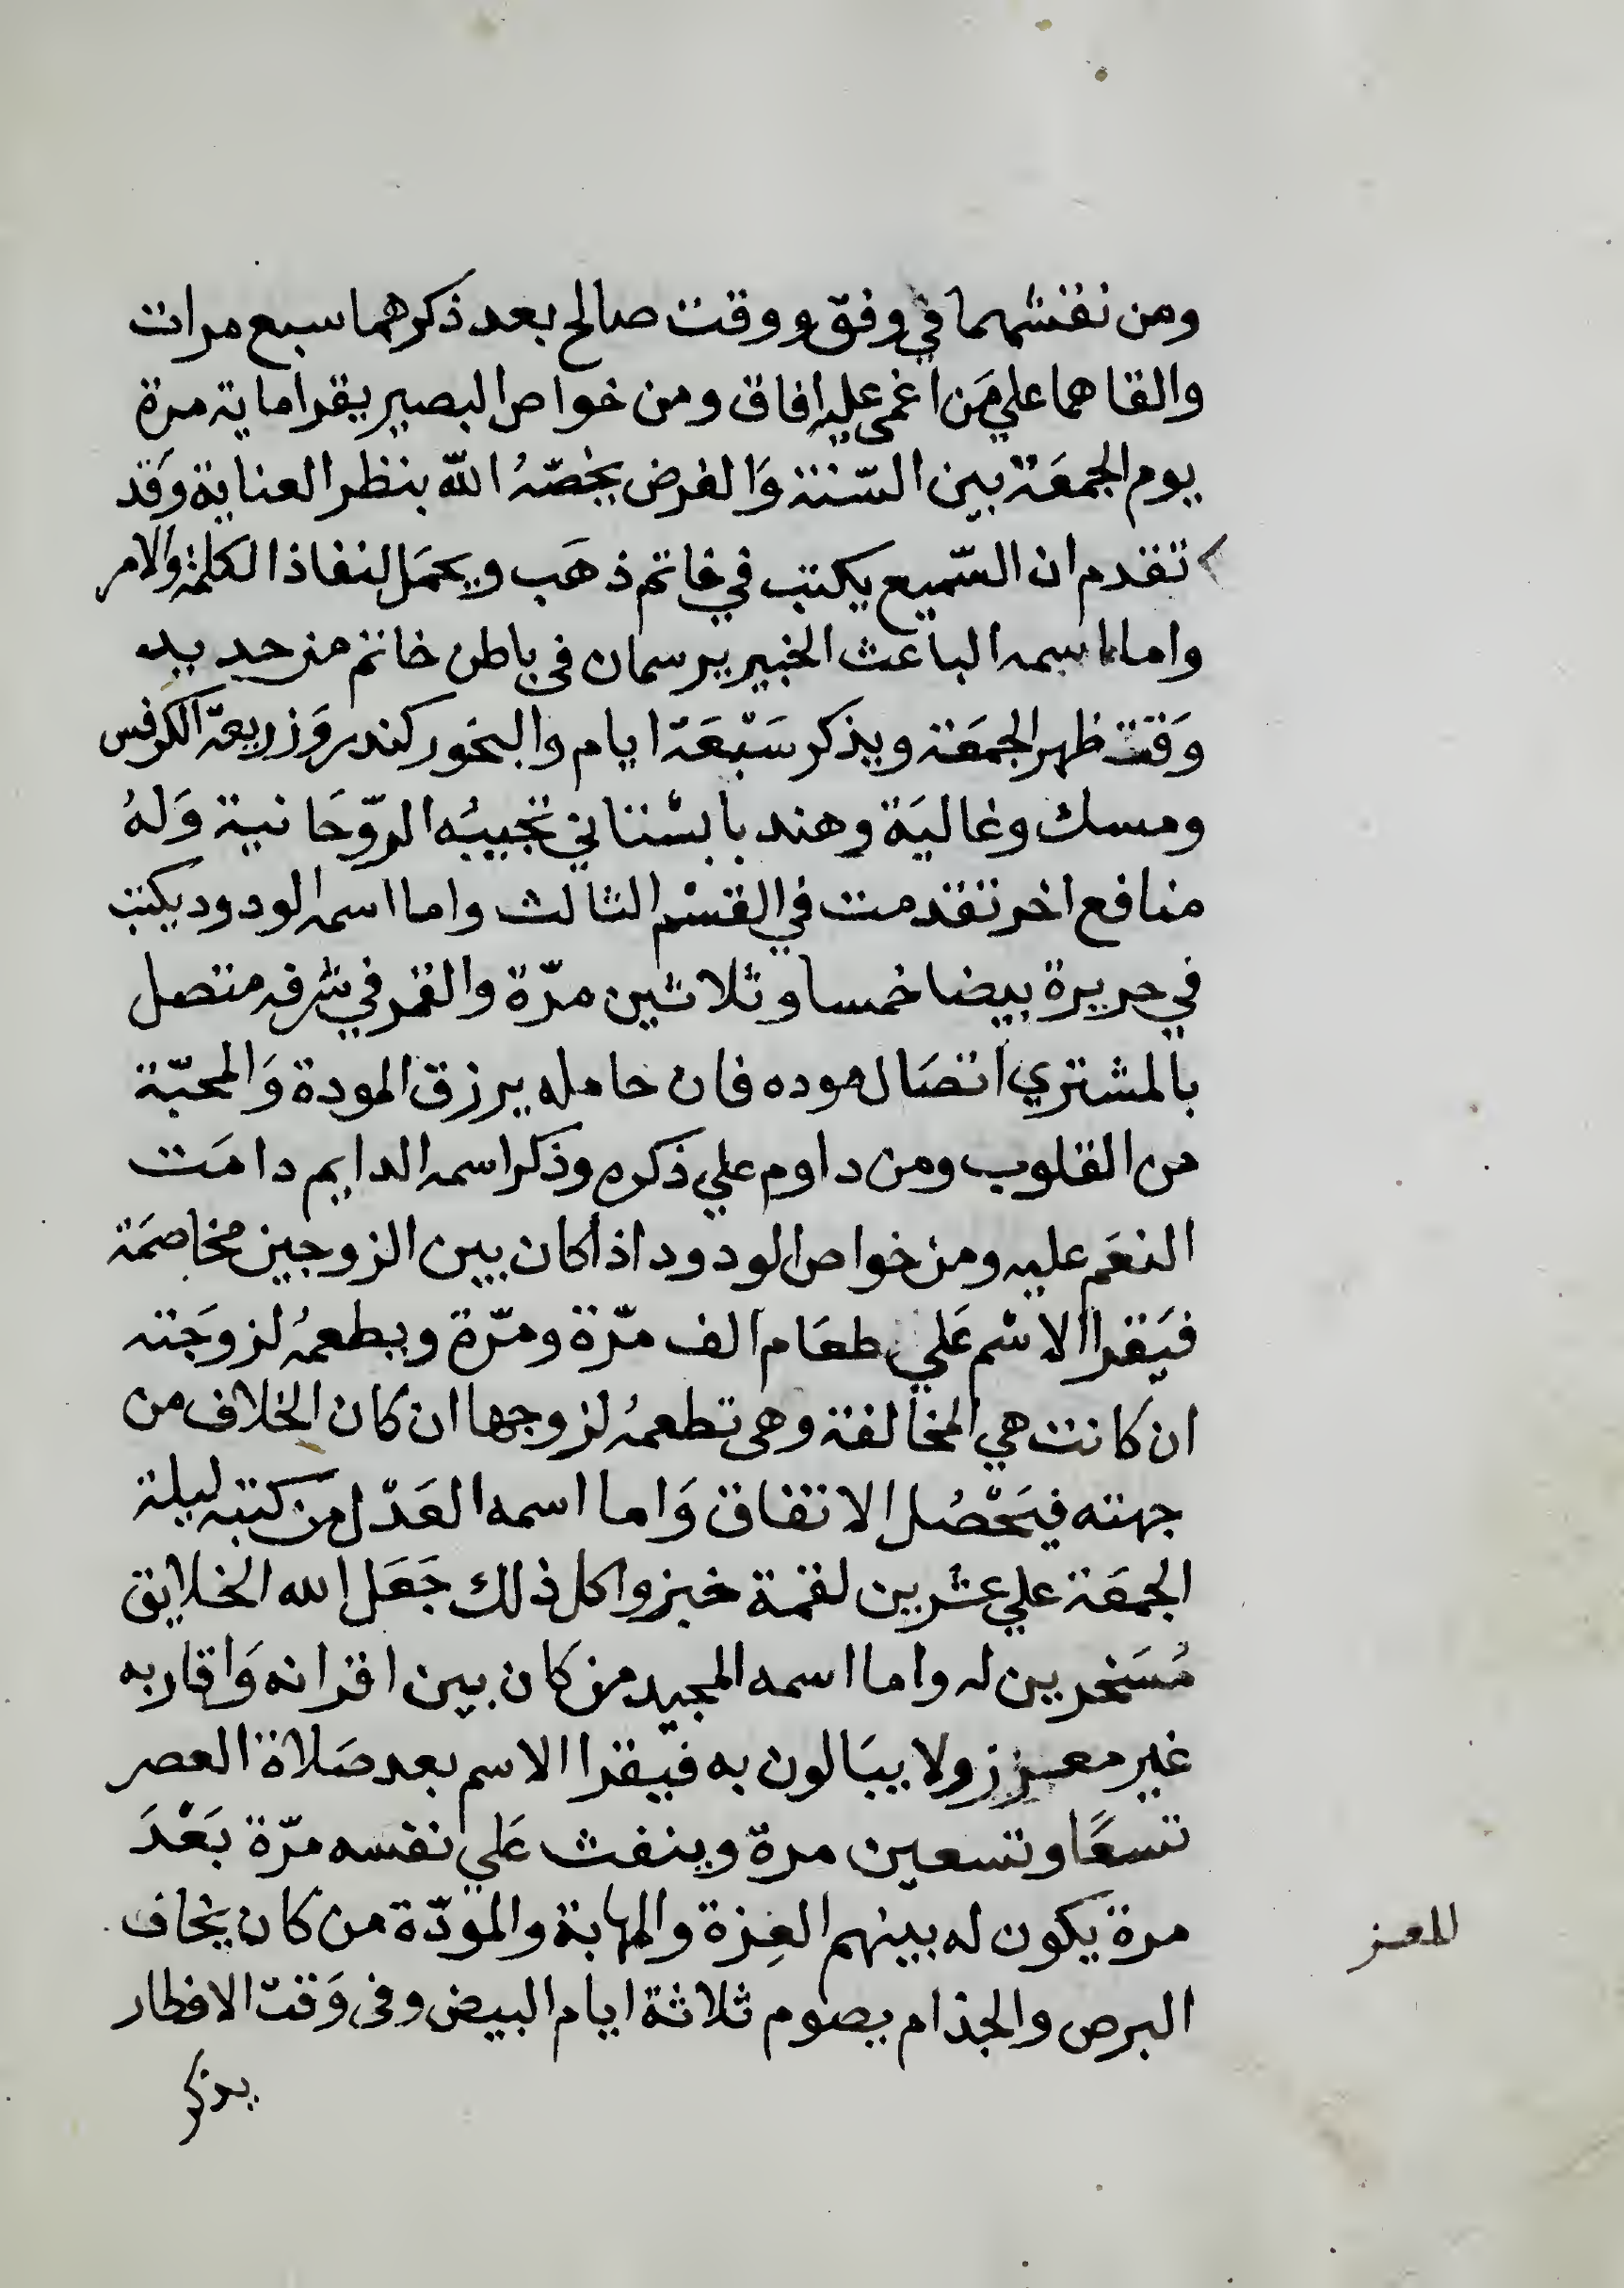 ومن نقشهما في وفق ووقت صالح بعد ذكرهما سبع مرات
والقاهما علي مَن اغمى عليه افاق ومن خواص البصير يقرا ماية مرة
يوم الجمعَة بين السّنة وَالفرض يخصّهُ الله بنظر العناية وَقد
تقدم ان السّميع يكتب في خاتم ذهَب ويحمَل لنفاذ الكلمة والامر
واما اسمه الباعث الخبير يرسمان في باطن خاتم من حديد
وَقت ظهر الجمعَة ويذكر سَبْعَة ايام والبخور كندر وَزريعة الكرفس
ومسك وغاليَة وهندبا بستاني تجيبُه الرّوحَانية وَلهُ
منافع اخر تقدمت في القسْم الثالث واما اسمه الودود يكتب
في حريرة بيضا خمسا وثلاثين مرّة والقمر في شرفه متصل
بالمشتري اتصَال موده فان حامله يرزق المودة وَالمحبّة
من القلوب ومن داوم علي ذكره وذكر اسمه الدايم دامَت
النعَم عليه ومن خواص الودود اذا كان بين الزوجين مخاصمَة
فيَقرا الاسْم عَلي طعَام الف مرّة ومرّة ويطعمهُ لزوجَته
ان كانت هي المخالفة وهى تطعمهُ لزوجها ان كان الخلاف من
جهته فيَحْصُل الاتفاق وَاما اسمه العَدْل من كتبه ليلة
الجمعَة علي عشرين لقمة خبز واكل ذلك جَعَل الله الخلايق
مُسَخرين له واما اسمه المجيد من كان بين اقرانه وَاقاربه
غير معزز ولا يبَالون به فيقرا الاسم بعد صَلاة العصر
تسعًا وتسعين مرة وينفث عَلي نفسه مرّة بَعْدَ
مرة يكون له بينهم العِزة والمهابة والمودّة من كان يخاف
للعز
البرص والجذام يصوم ثلاثة ايام البيض وفى وَقت الافطار
يذكر